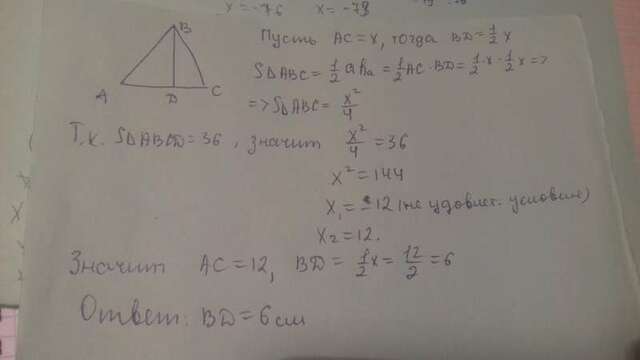 x = -76 x = -79
B
A
D
C
Пусть AC = x, тогда BD = 1/2 x
S△ABC = 1/2 a hₐ = 1/2 AC · BD = 1/2 · x · 1/2 x =>
=> S△ABC = x²/4
Т.к. S△ABC = 36, значит x²/4 = 36
x² = 144
x₁ = -12 (не удовлет. условию)
x₂ = 12.
Значит AC = 12, BD = 1/2 x = 12/2 = 6
Ответ: BD = 6 см